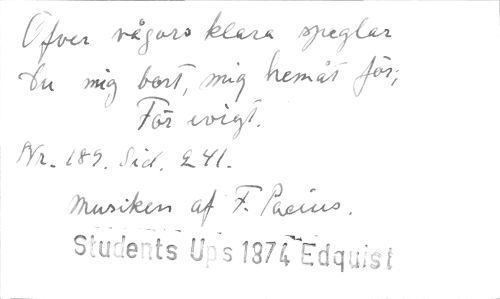 Öfver vågors klara speglar
Du mig bort, mig hemåt för;
För evigt.
Nr. 189. Sid. 241.
Musiken af F. Pacius.
Students Ups 1874 Edquist